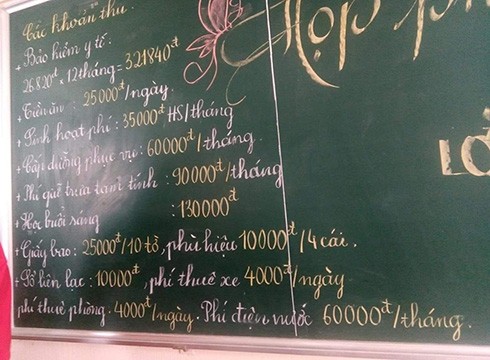 Các khoản thu.
+ Bảo hiểm y tế.
26.820đ x 12 tháng = 321840đ
+ Tiền ăn: 25000đ/ngày.
+ Sinh hoạt phí: 35000đ HS/tháng
+ Cấp dưỡng phục vụ: 60000đ/tháng.
+ Phí gửi trưa tạm tính: 90000đ/tháng
+ Học buổi sáng : 130000đ
+ Giấy bao: 25000đ/10 tờ, phù hiệu 10000đ/4 cái.
+ Sổ liên lạc: 10000đ, phí thuê xe 4000đ/ngày
phí thuê phòng: 4000đ/ngày. Phí điện nước 60000đ/tháng.
Họp